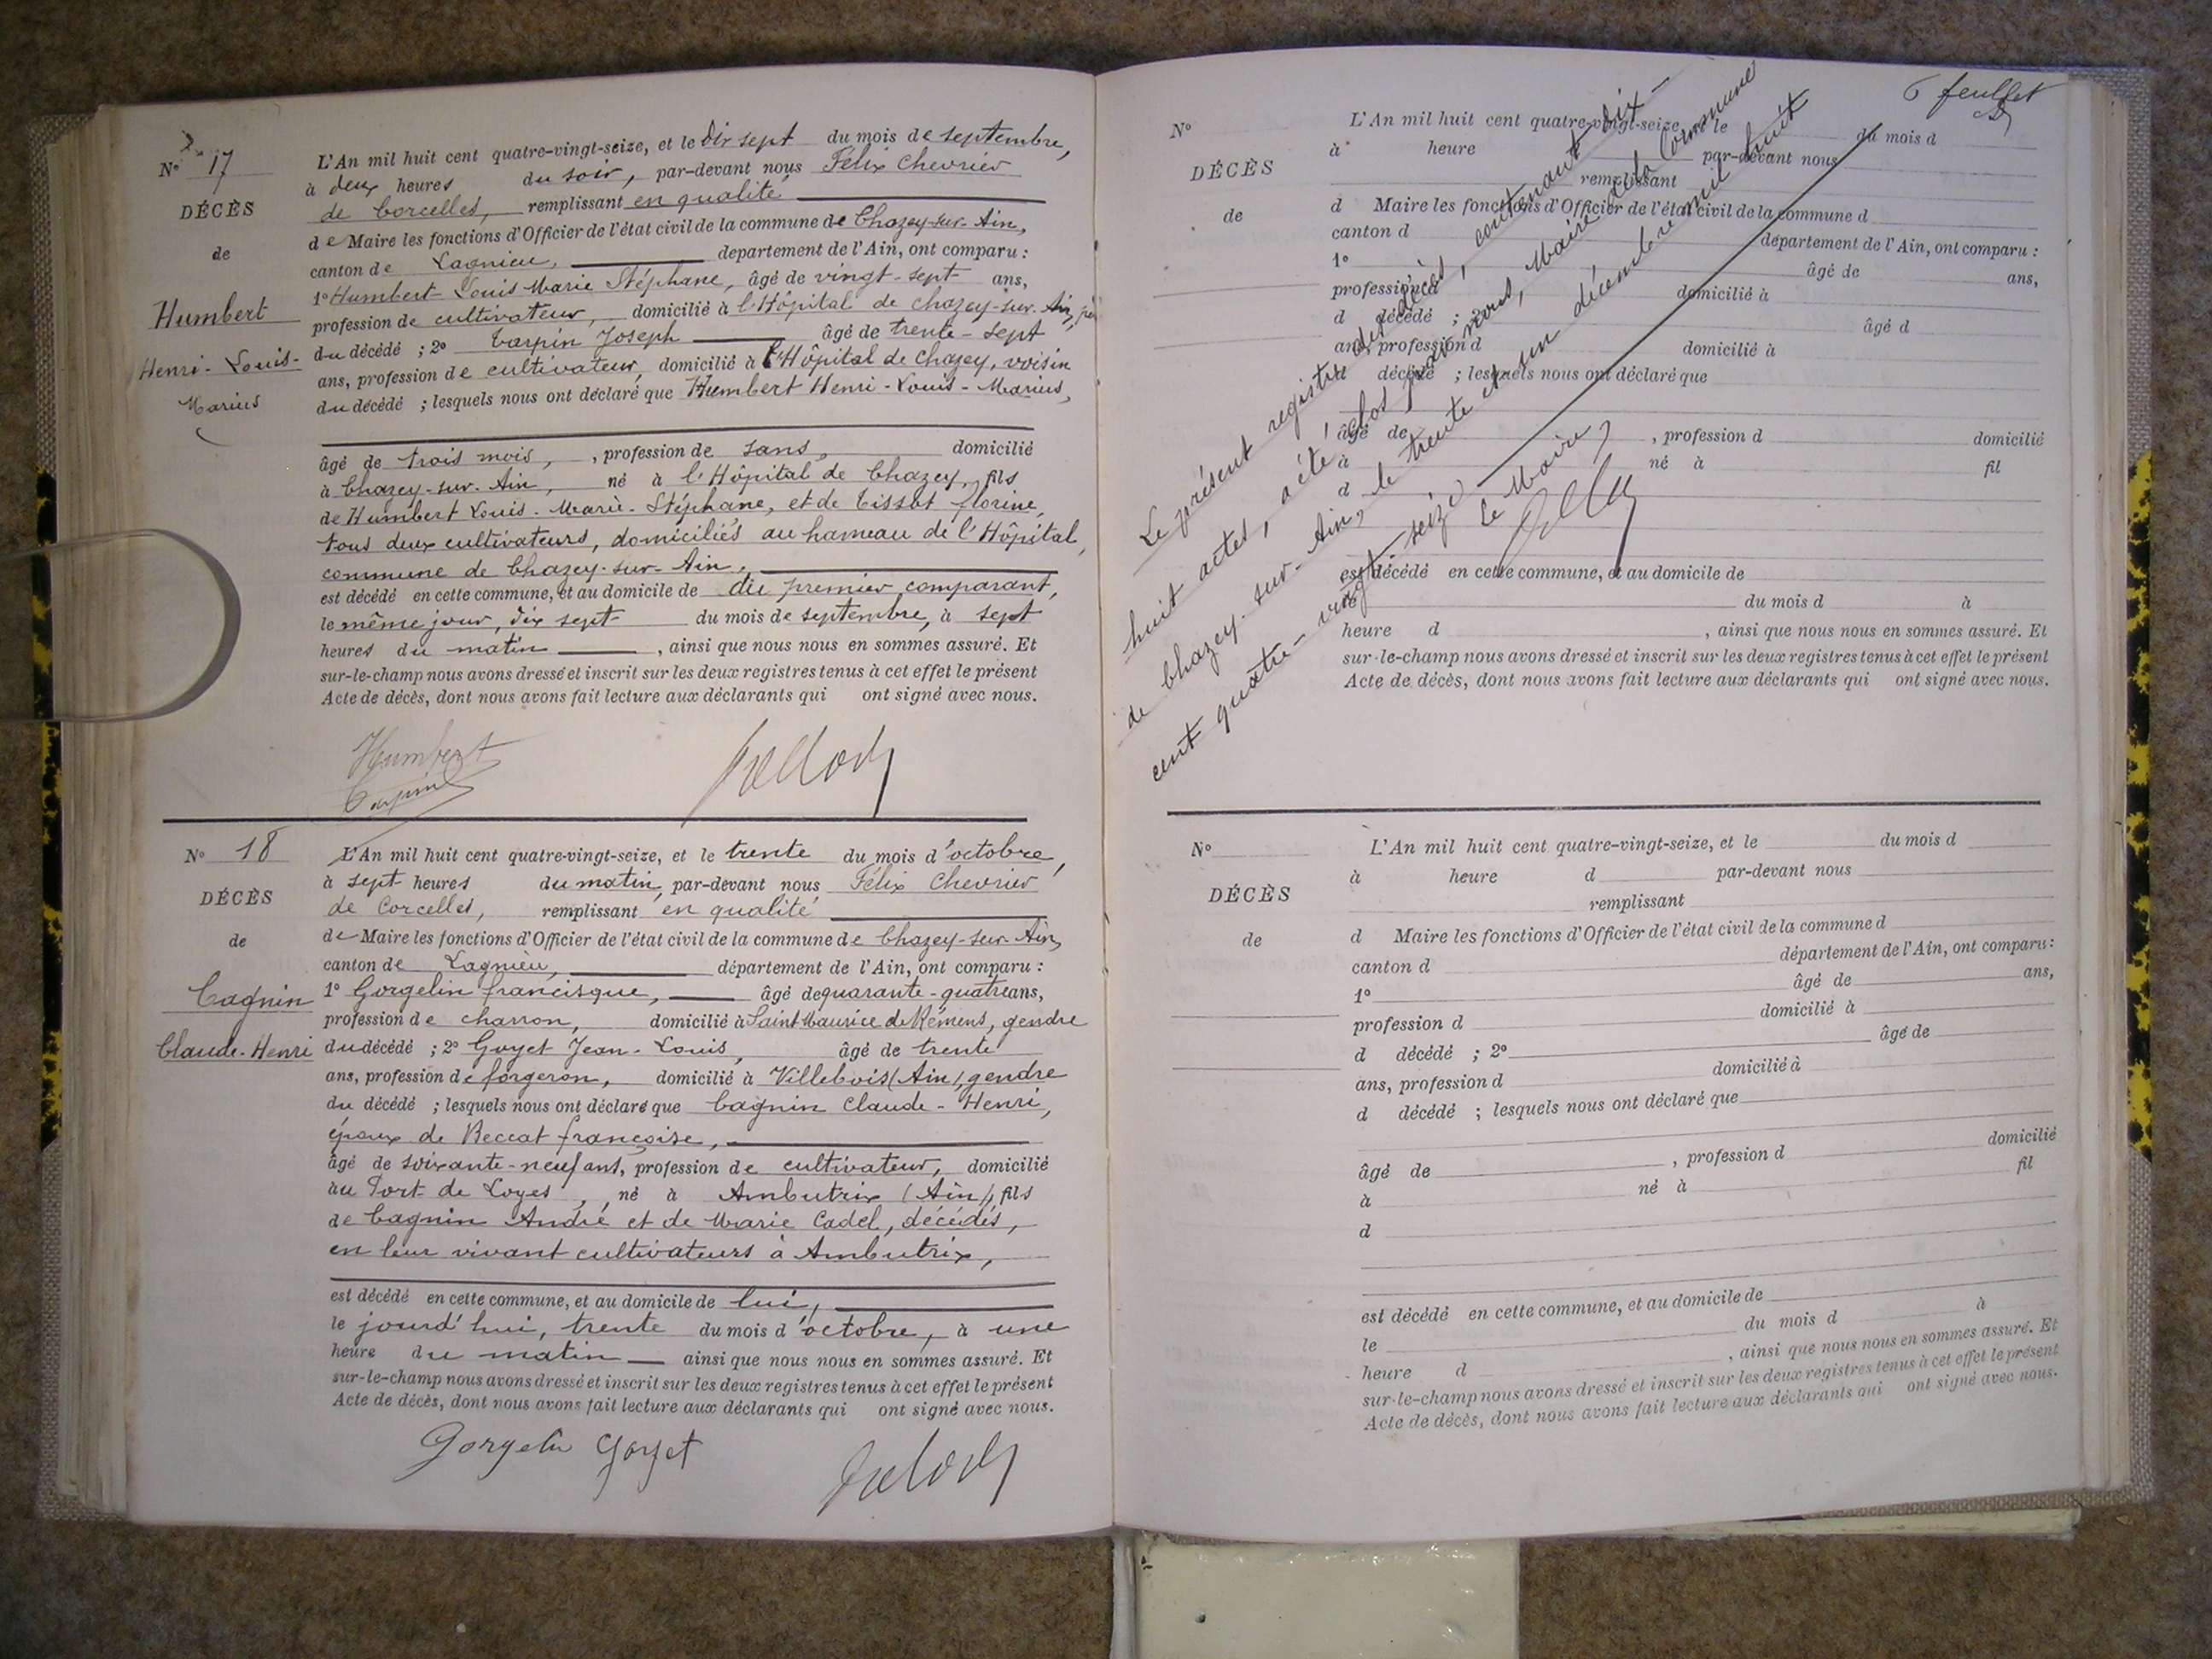 N° 17
DÉCÈS
de
Humbert
Henri-Louis-
Marius
L'An mil huit cent quatre-vingt-seize, et le dix sept du mois de septembre,
à deux heures du soir, par-devant nous Félix Chevrier
de Corcelles, remplissant en qualité
de Maire les fonctions d'Officier de l'état civil de la commune de Chazey-sur-Ain,
canton de Lagnieu, département de l'Ain, ont comparu :
1° Humbert Louis Marie Stéphane, âgé de vingt-sept ans,
profession de cultivateur, domicilié à l'Hôpital de Chazey-sur-Ain,
du décédé ; 2° Joseph âgé de trente-sept
ans, profession de cultivateur, domicilié à l'Hôpital de Chazey, voisin
du décédé ; lesquels nous ont déclaré que Humbert Henri-Louis-Marius,
âgé de trois mois, , profession de sans, domicilié
à Chazey-sur-Ain, né à l'Hôpital de Chazey, fils
de Humbert Louis-Marie-Stéphane, et de Tissot florine,
tous deux cultivateurs, domiciliés au hameau de l'Hôpital,
commune de Chazey-sur-Ain,
est décédé en cette commune, et au domicile de du premier comparant,
le même jour, dix sept du mois de septembre, à sept
heures du matin , ainsi que nous nous en sommes assuré. Et
sur-le-champ nous avons dressé et inscrit sur les deux registres tenus à cet effet le présent
Acte de décès, dont nous avons fait lecture aux déclarants qui ont signé avec nous.
Humbert
N° 18
DÉCÈS
de
Cagnin
Claude-Henri
L'An mil huit cent quatre-vingt-seize, et le trente du mois d'octobre,
à sept heures du matin, par-devant nous Félix Chevrier
de Corcelles, remplissant en qualité
de Maire les fonctions d'Officier de l'état civil de la commune de Chazey-sur-Ain,
canton de Lagnieu, département de l'Ain, ont comparu :
1° Gorgelin francisque, âgé de quarante-quatre ans,
profession de charron, domicilié à Saint Maurice de Rémens, gendre
du décédé ; 2° Goyet Jean-Louis, âgé de trente
ans, profession de forgeron, domicilié à Villebois (Ain), gendre
du décédé ; lesquels nous ont déclaré que Cagnin Claude-Henri,
époux de Reccat françoise,
âgé de soixante-neuf ans, profession de cultivateur, domicilié
au Port de Loyes, né à Ambutrix (Ain), fils
de Cagnin André et de Marie Cadel, décédés,
en leur vivant cultivateurs à Ambutrix,
est décédé en cette commune, et au domicile de lui,
le jourd'hui, trente du mois d'octobre, à une
heure du matin ainsi que nous nous en sommes assuré. Et
sur-le-champ nous avons dressé et inscrit sur les deux registres tenus à cet effet le présent
Acte de décès, dont nous avons fait lecture aux déclarants qui ont signé avec nous.
Gorgelin Goyet
6 feuillet
N°
DÉCÈS
de
L'An mil huit cent quatre-vingt-seize, et le du mois d
à heure d par-devant nous
remplissant
d Maire les fonctions d'Officier de l'état civil de la commune d
canton d département de l'Ain, ont comparu :
1° âgé de ans,
profession d domicilié à
d décédé ; 2° âgé d
ans, profession d domicilié à
d décédé ; lesquels nous ont déclaré que
âgé de , profession d domicilié
à né à fil
d
est décédé en cette commune, et au domicile de
le du mois d à
heure d , ainsi que nous nous en sommes assuré. Et
sur-le-champ nous avons dressé et inscrit sur les deux registres tenus à cet effet le présent
Acte de décès, dont nous avons fait lecture aux déclarants qui ont signé avec nous.
Le présent registre des décès, contenant dix-
huit actes, a été clos par nous, Maire de la Commune
de Chazey-sur-Ain, le trente et un décembre mil huit
cent quatre-vingt-seize
Le Maire,
N°
DÉCÈS
de
L'An mil huit cent quatre-vingt-seize, et le du mois d
à heure d par-devant nous
remplissant
d Maire les fonctions d'Officier de l'état civil de la commune d
canton d département de l'Ain, ont comparu :
1° âgé de ans,
profession d domicilié à
d décédé ; 2° âgé de
ans, profession d domicilié à
d décédé ; lesquels nous ont déclaré que
âgé de , profession d domicilié
à né à fil
d
est décédé en cette commune, et au domicile de
le du mois d à
heure d , ainsi que nous nous en sommes assuré. Et
sur-le-champ nous avons dressé et inscrit sur les deux registres tenus à cet effet le présent
Acte de décès, dont nous avons fait lecture aux déclarants qui ont signé avec nous.